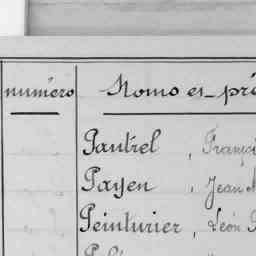 numéro Noms es_pré
Pautrel, Franço
Payen, Jean
Peinturier, Léon